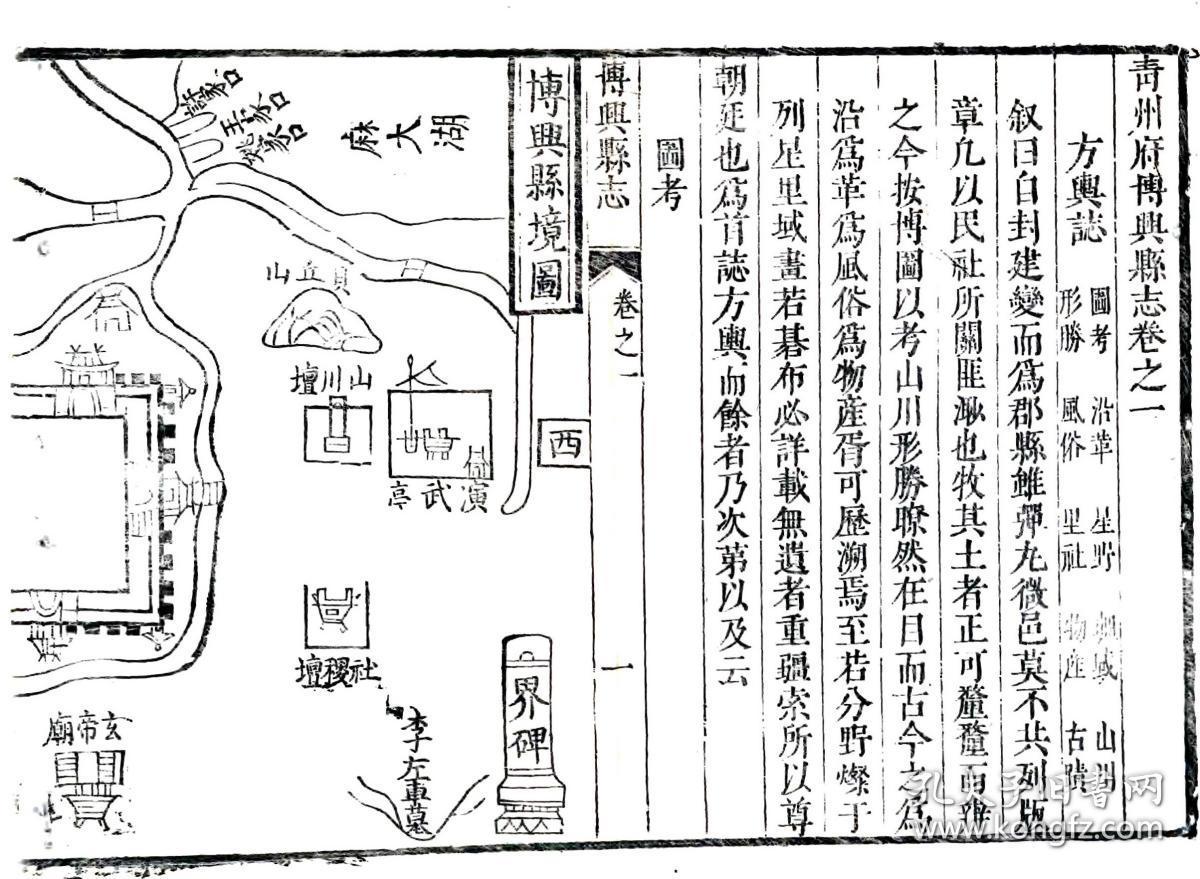 青州府博興縣志卷之一
方輿誌
圖考 沿革 星野 山川
形勝 風俗 里社 物産 古蹟
叙曰自封建變而爲郡縣雖彈丸微邑莫不共列版
章凢以民社所關匪渺也牧其土者正可釐釐而
之今按博圖以考山川形勝瞭然在目而古今之爲
沿爲革爲風俗爲物產胥可歷溯焉至若分野燦于
列星里域畫若碁布必詳載無遺者重疆索所以尊
朝廷也爲首誌方輿而餘者乃次第以及云
圖考
博興縣志
卷之一
一
博興縣境圖
西
界碑
湖大麻
王家口
貝丘山
山川壇
演武亭
社稷壇
李左車墓
玄帝廟
孔夫子旧书网
www.kongfz.com